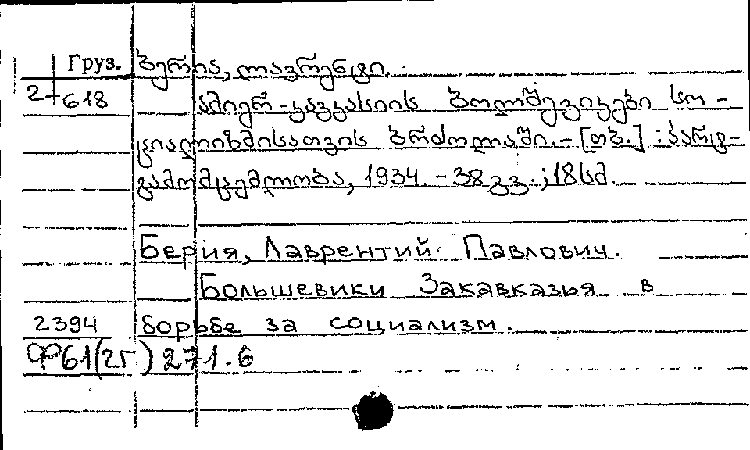 Груз. ბერია, ლავრენტი.
2-618 ამიერ-კავკასიის ბოლშევიკები სო-
ციალიზმისათვის ბრძოლაში. - [თბ.] : პარტ-
გამომცემლობა, 1934. - 38 გვ. ; 18 სმ.
Берия, Лаврентий Павлович.
Большевики Закавказья в
2394 борьбе за социализм.
61(2Г) 271.6